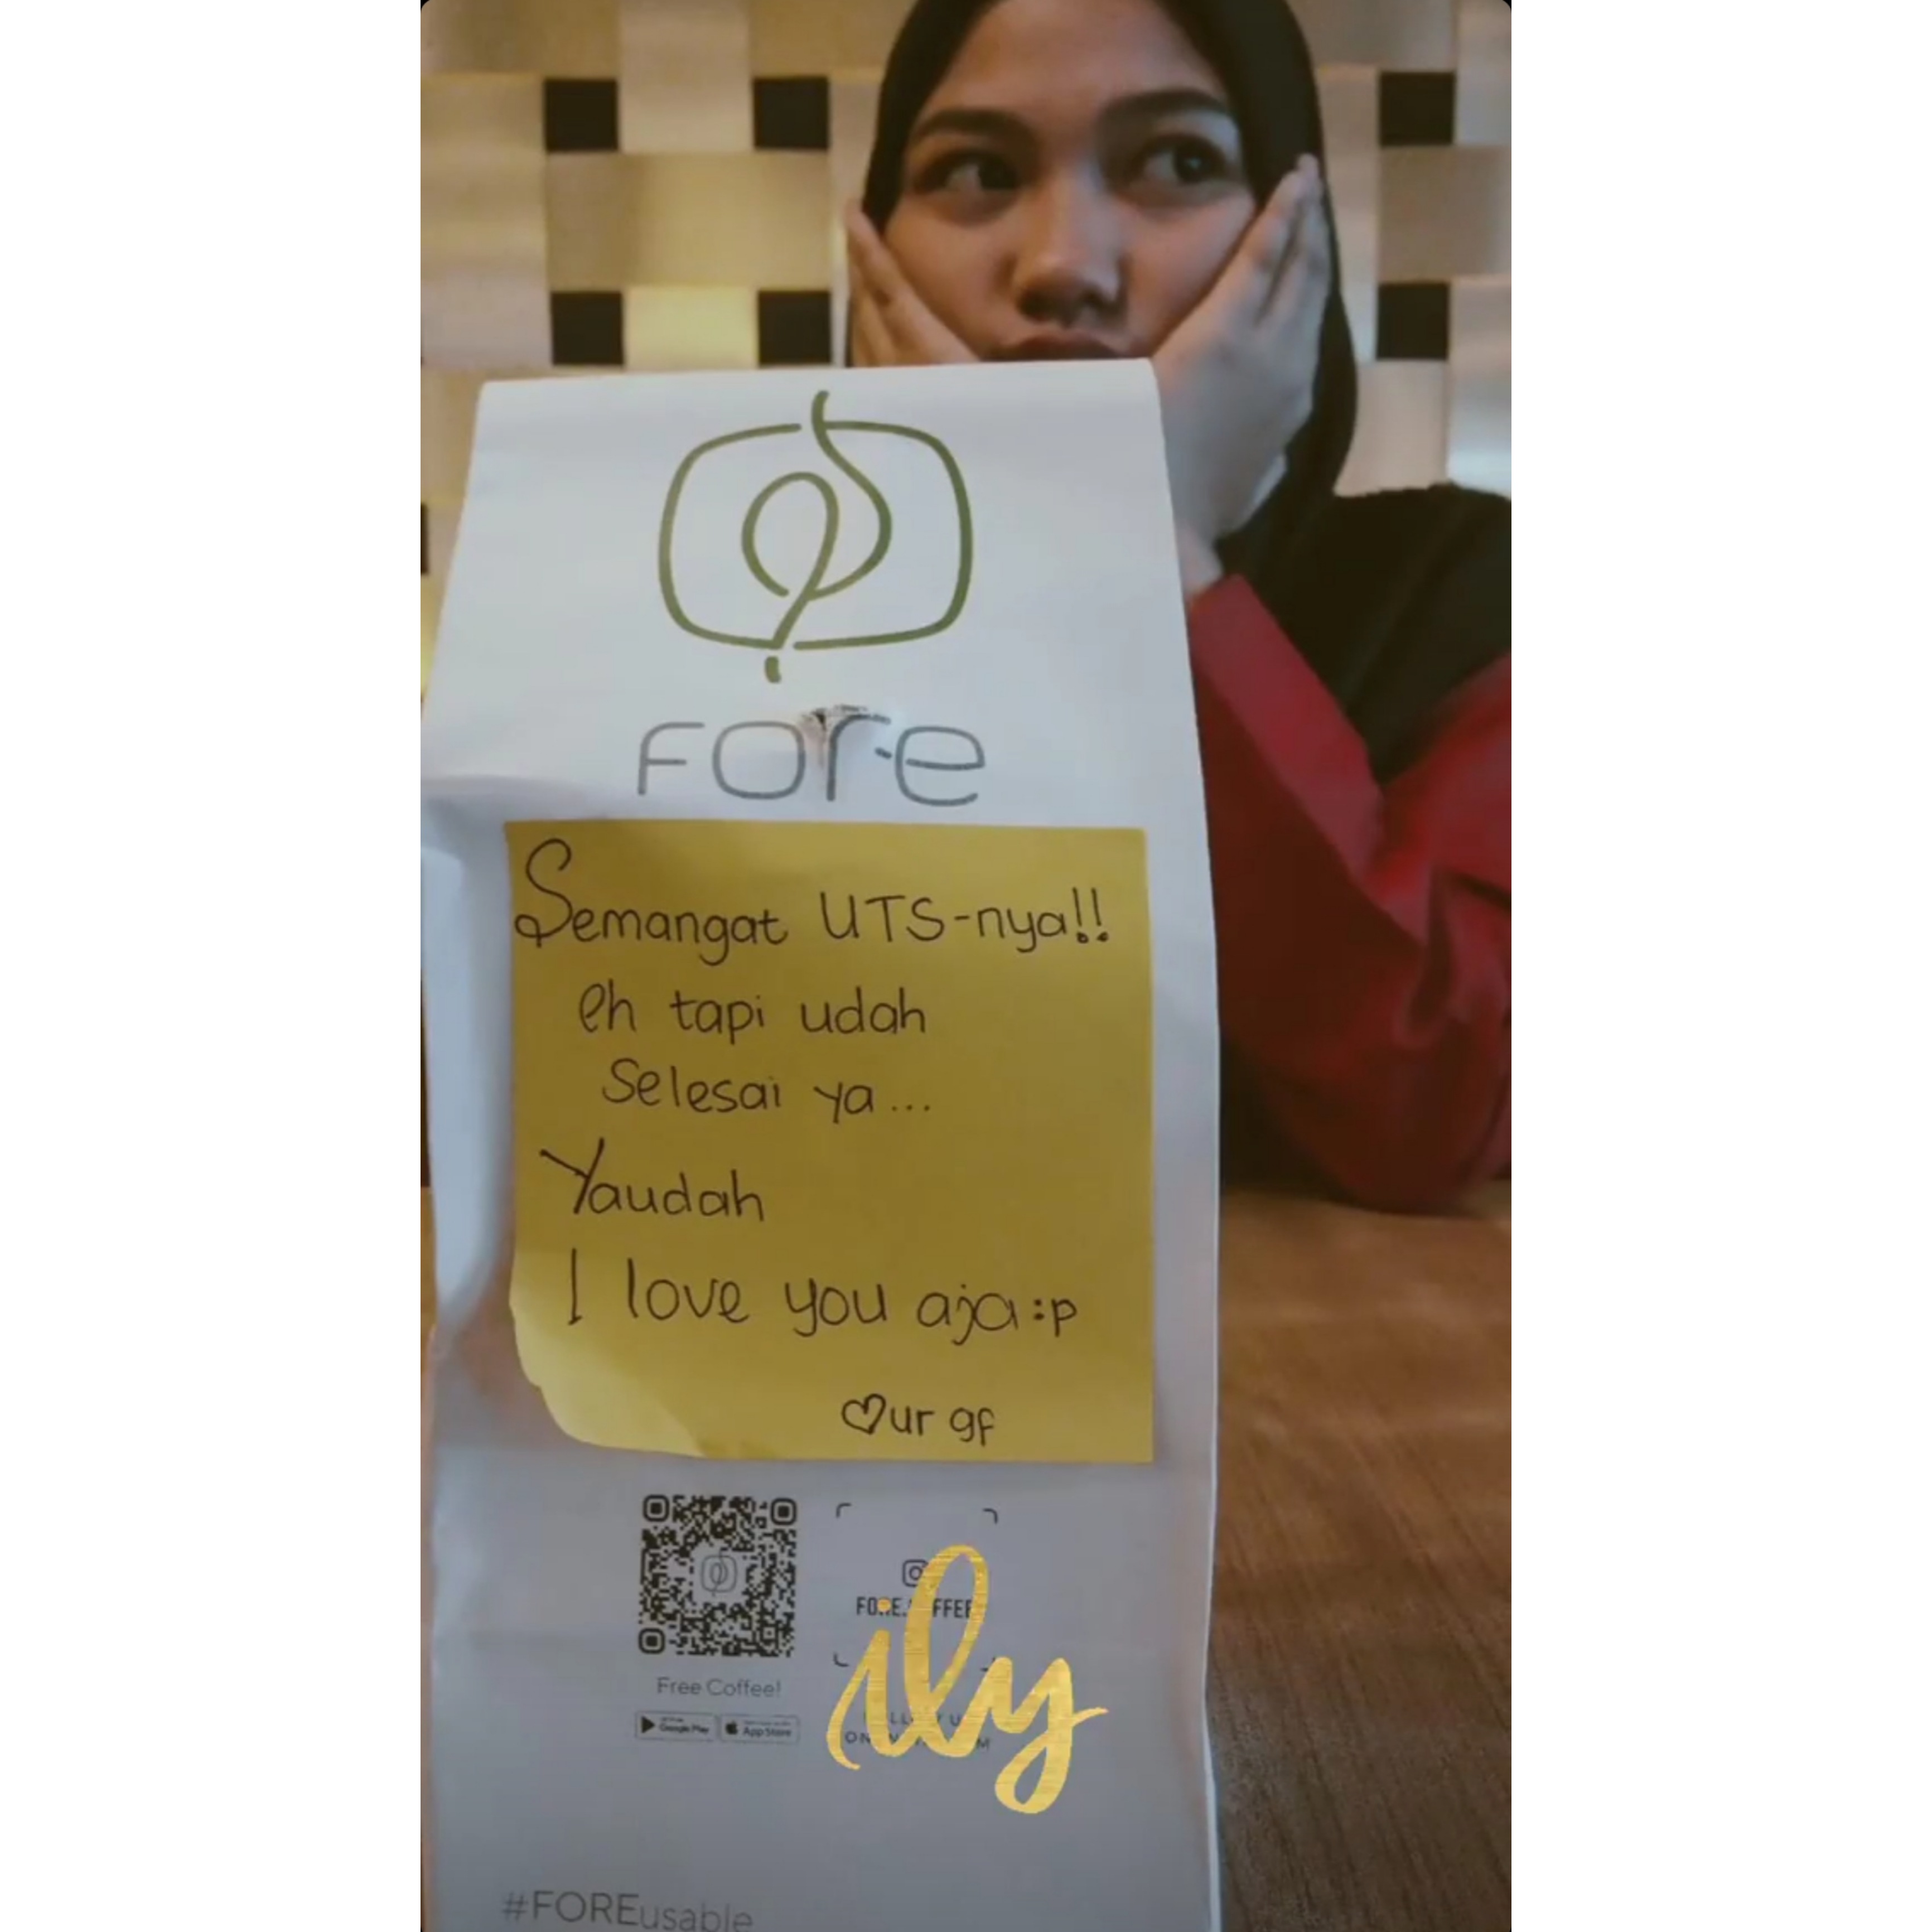 Fore
Semangat UTS-nya!!
eh tapi udah
Selesai ya...
Yaudah
I love you aja :p
♡ur gf
Free Coffee!
Google Play App Store
ily
#FOREusable